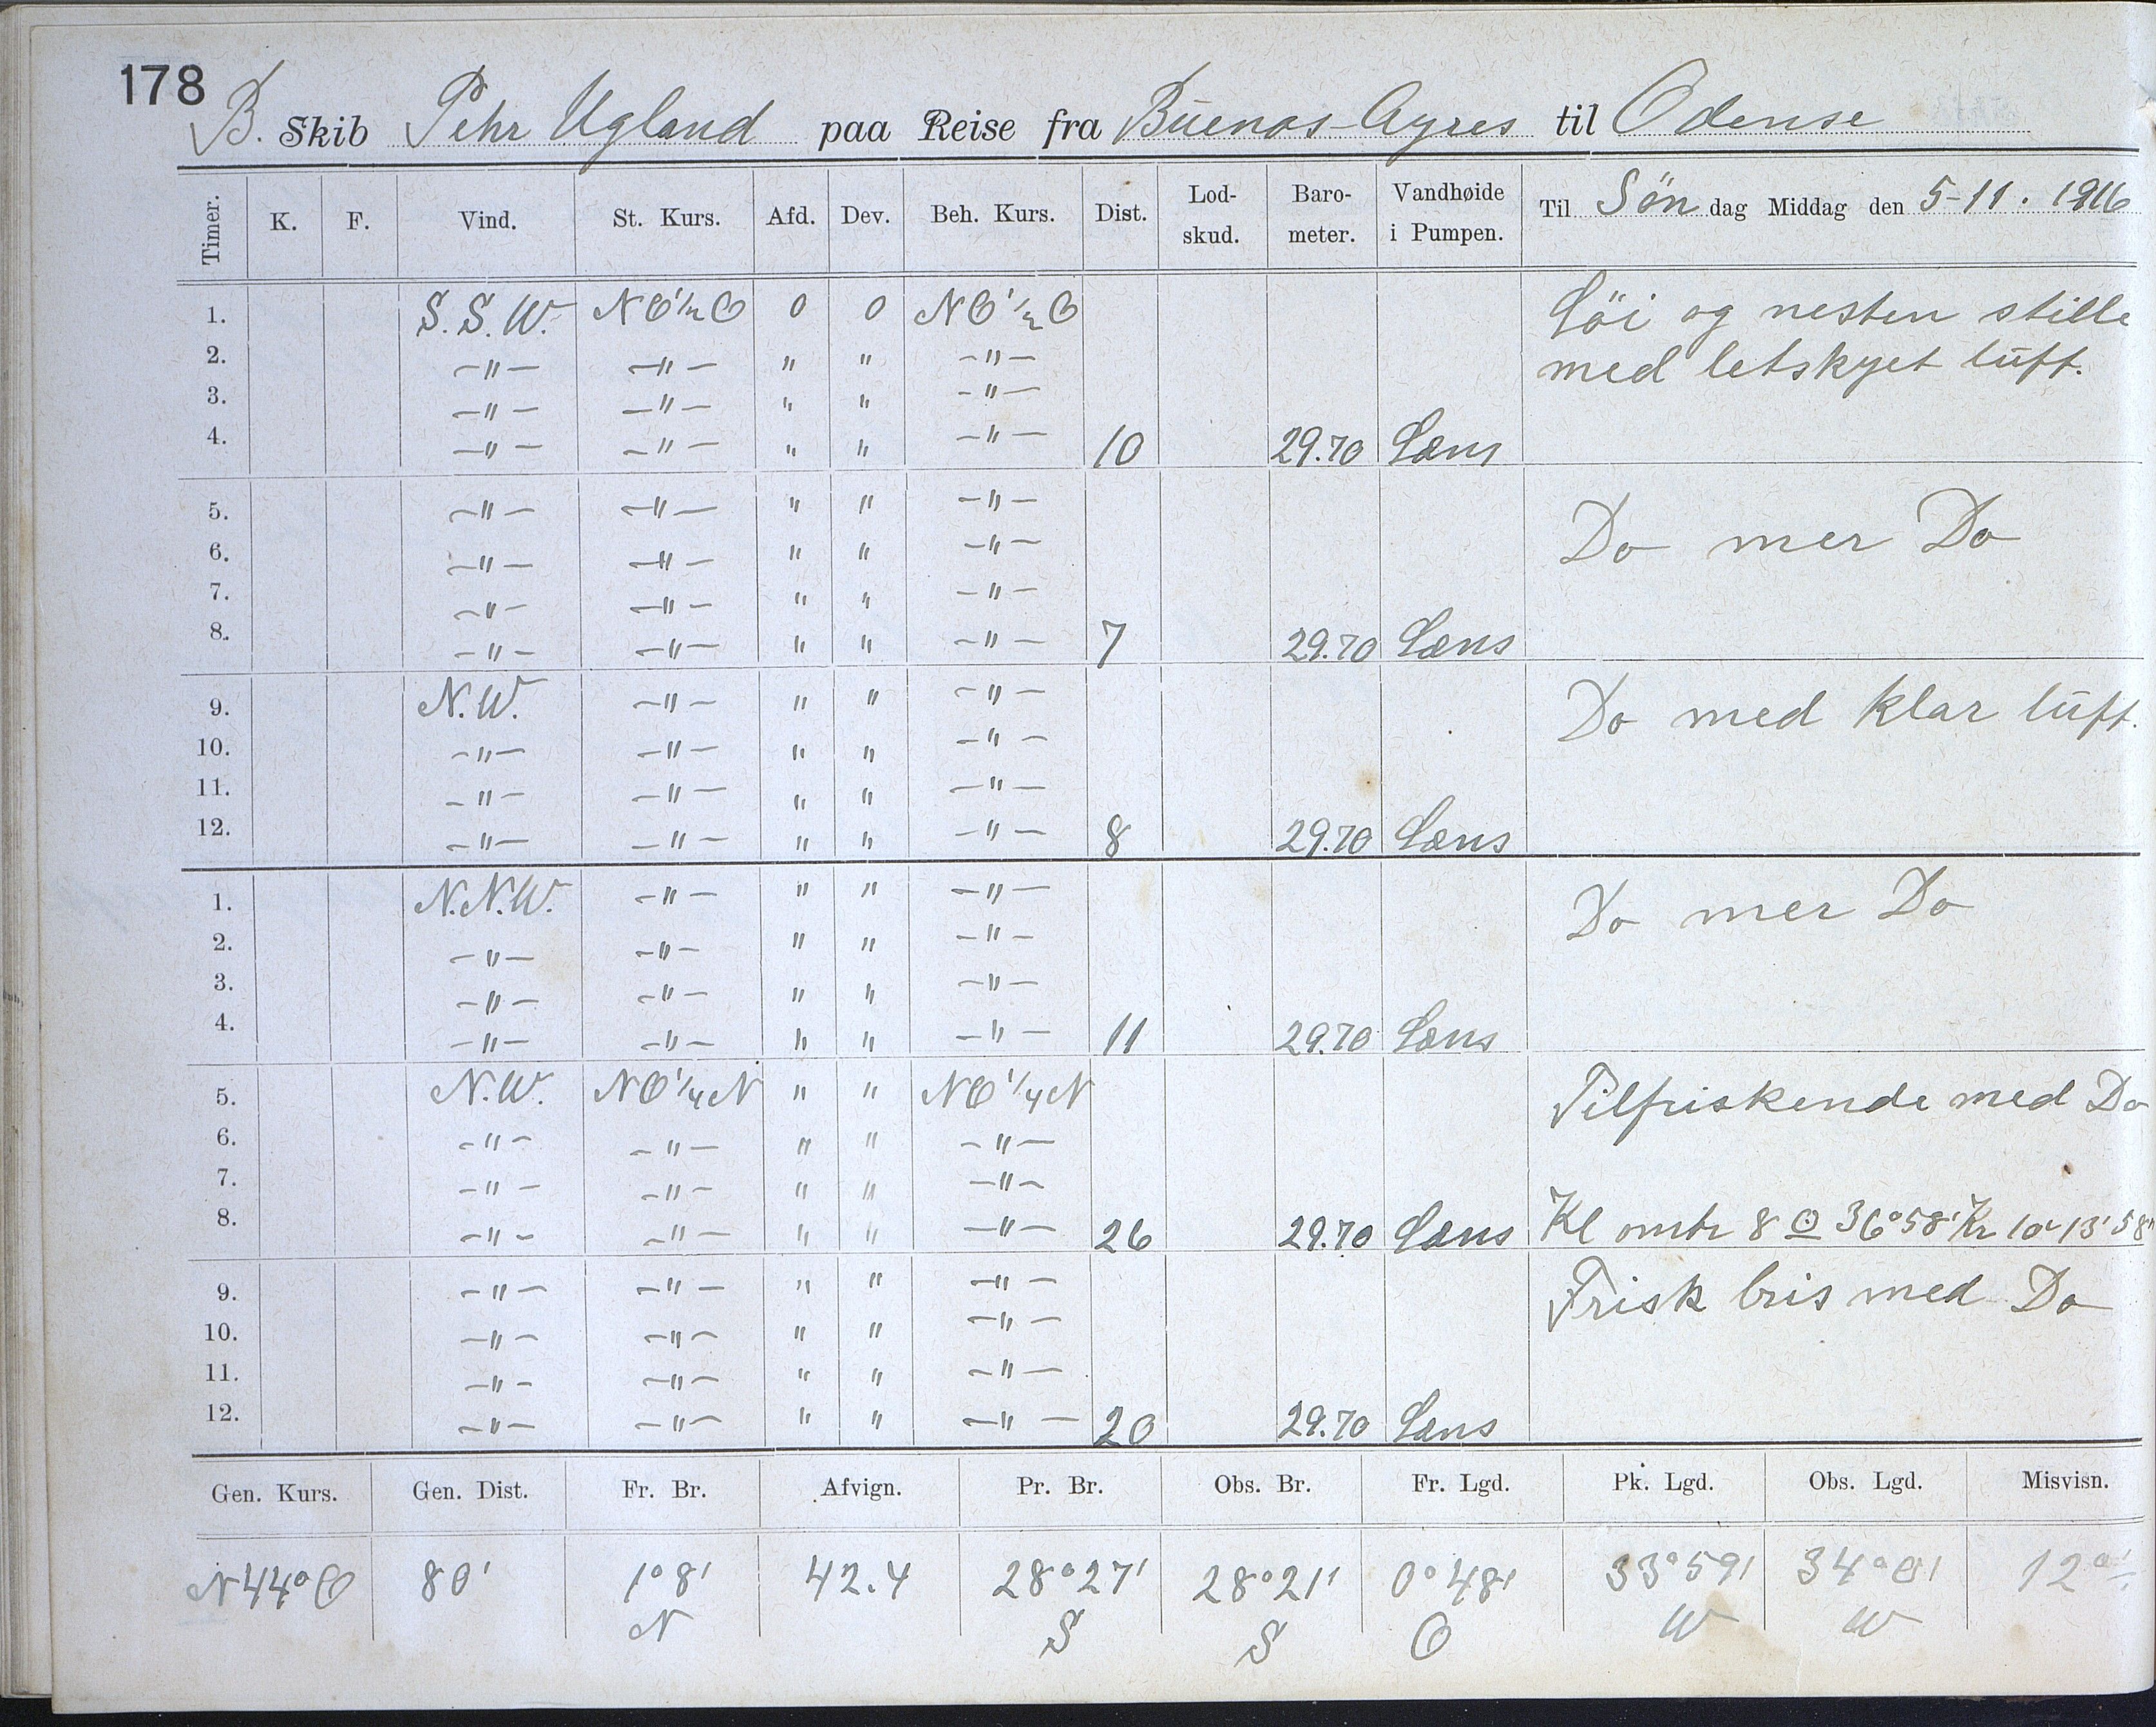 178
B. Skib Pehr Ugland paa Reise fra Buenos-Ayres til Odense
Timer. K. F. Vind. St. Kurs. Afd. Dev. Beh. Kurs. Dist. Lod-skud. Baro-meter. Vandhøide i Pumpen. Til Søn dag Middag den 5-11. 1916
1. S.S.W. NO½O 0 0 NO½O Löi og nesten stille
2. -"- -"- " " -"- med letskyet luft.
3. -"- -"- " " -"-
4. -"- -"- " " -"- 10 29.70 Læns
5. -"- -"- " " -"- Do mer Do
6. -"- -"- " " -"-
7. -"- -"- " " -"-
8. -"- -"- " " -"- 7 29.70 Læns
9. N.W. -"- " " -"- Do med klar luft.
10. -"- -"- " " -"-
11. -"- -"- " " -"-
12. -"- -"- " " -"- 8 29.70 Læns
1. N.N.W. -"- " " -"- Do mer Do
2. -"- -"- " " -"-
3. -"- -"- " " -"-
4. -"- -"- " " -"- 11 29.70 Læns
5. N.W. NO¼N " " NO¼N Tilfriskende med Do
6. -"- -"- " " -"-
7. -"- -"- " " -"-
8. -"- -"- " " -"- 26 29.70 Læns Kl omtr 8 ☉ 36°58' Kr 10 13' 58"
9. -"- -"- " " -"- Frisk bris med Do
10. -"- -"- " " -"-
11. -"- -"- " " -"-
12. -"- -"- " " -"- 20 29.70 Læns
Gen. Kurs. Gen. Dist. Fr. Br. Afvign. Pr. Br. Obs. Br. Fr. Lgd. Pk. Lgd. Obs. Lgd. Misvisn.
N44°O 80' 1°8' 42.4 28°27' 28°21' 0°48' 33°59' 34°0' 12°
N S S O W W